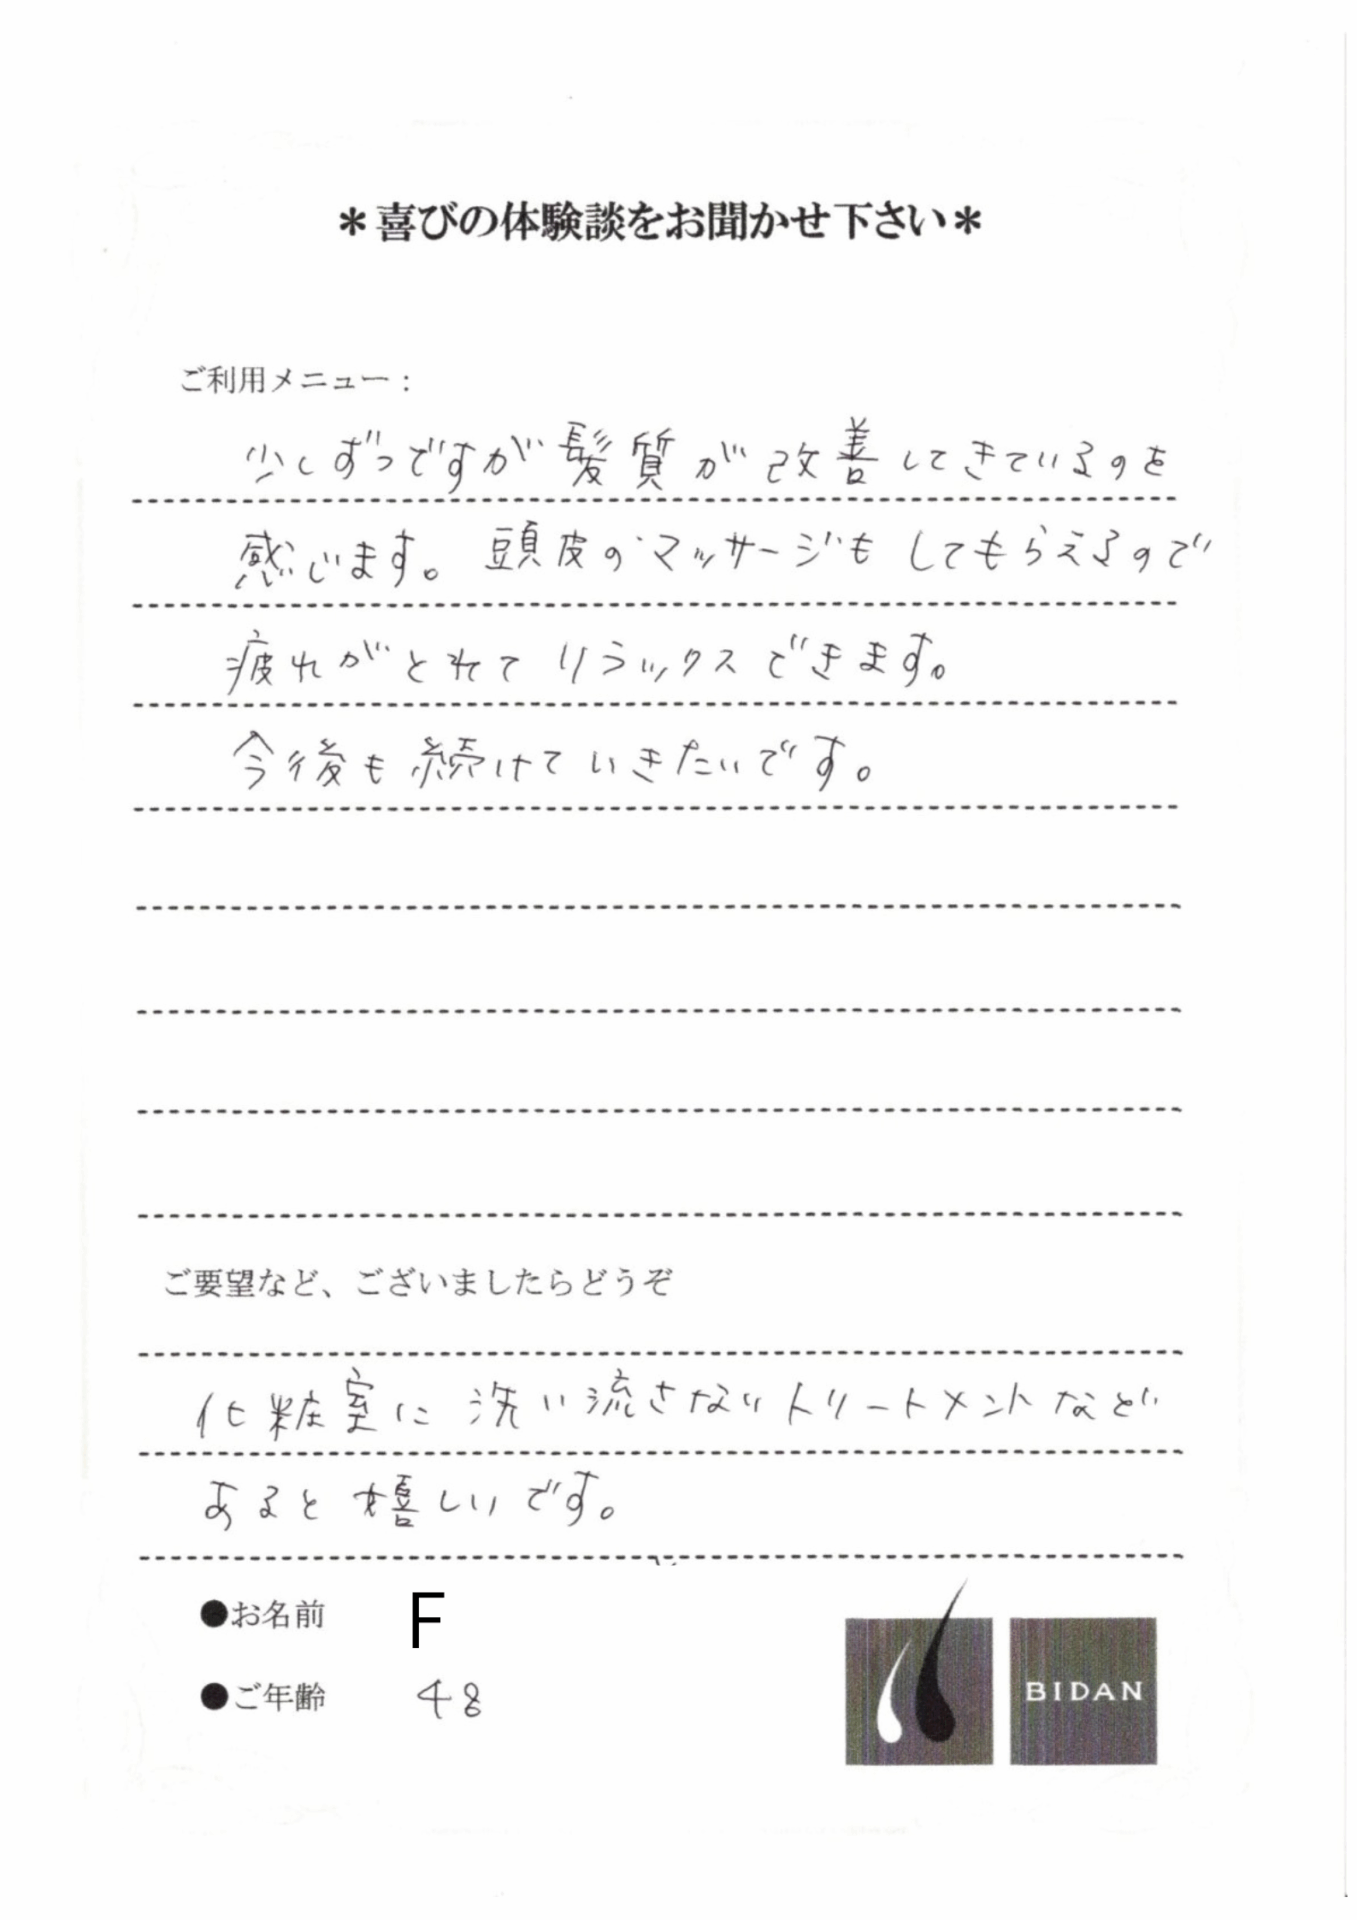 ＊喜びの体験談をお聞かせ下さい＊
ご利用メニュー：
少しずつですが髪質が改善してきているのを
感じます。頭皮のマッサージもしてもらえるので
疲れがとれてリラックスできます。
今後も続けていきたいです。
ご要望など、ございましたらどうぞ
化粧室に洗い流さないトリートメントなど
あると嬉しいです。
●お名前 F
●ご年齢 48
BIDAN